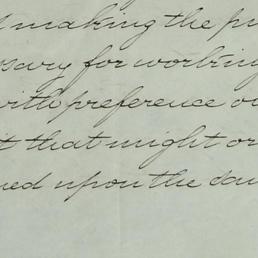 making the pr
ssary for working
with preference ov
t that might or
ued upon the sai